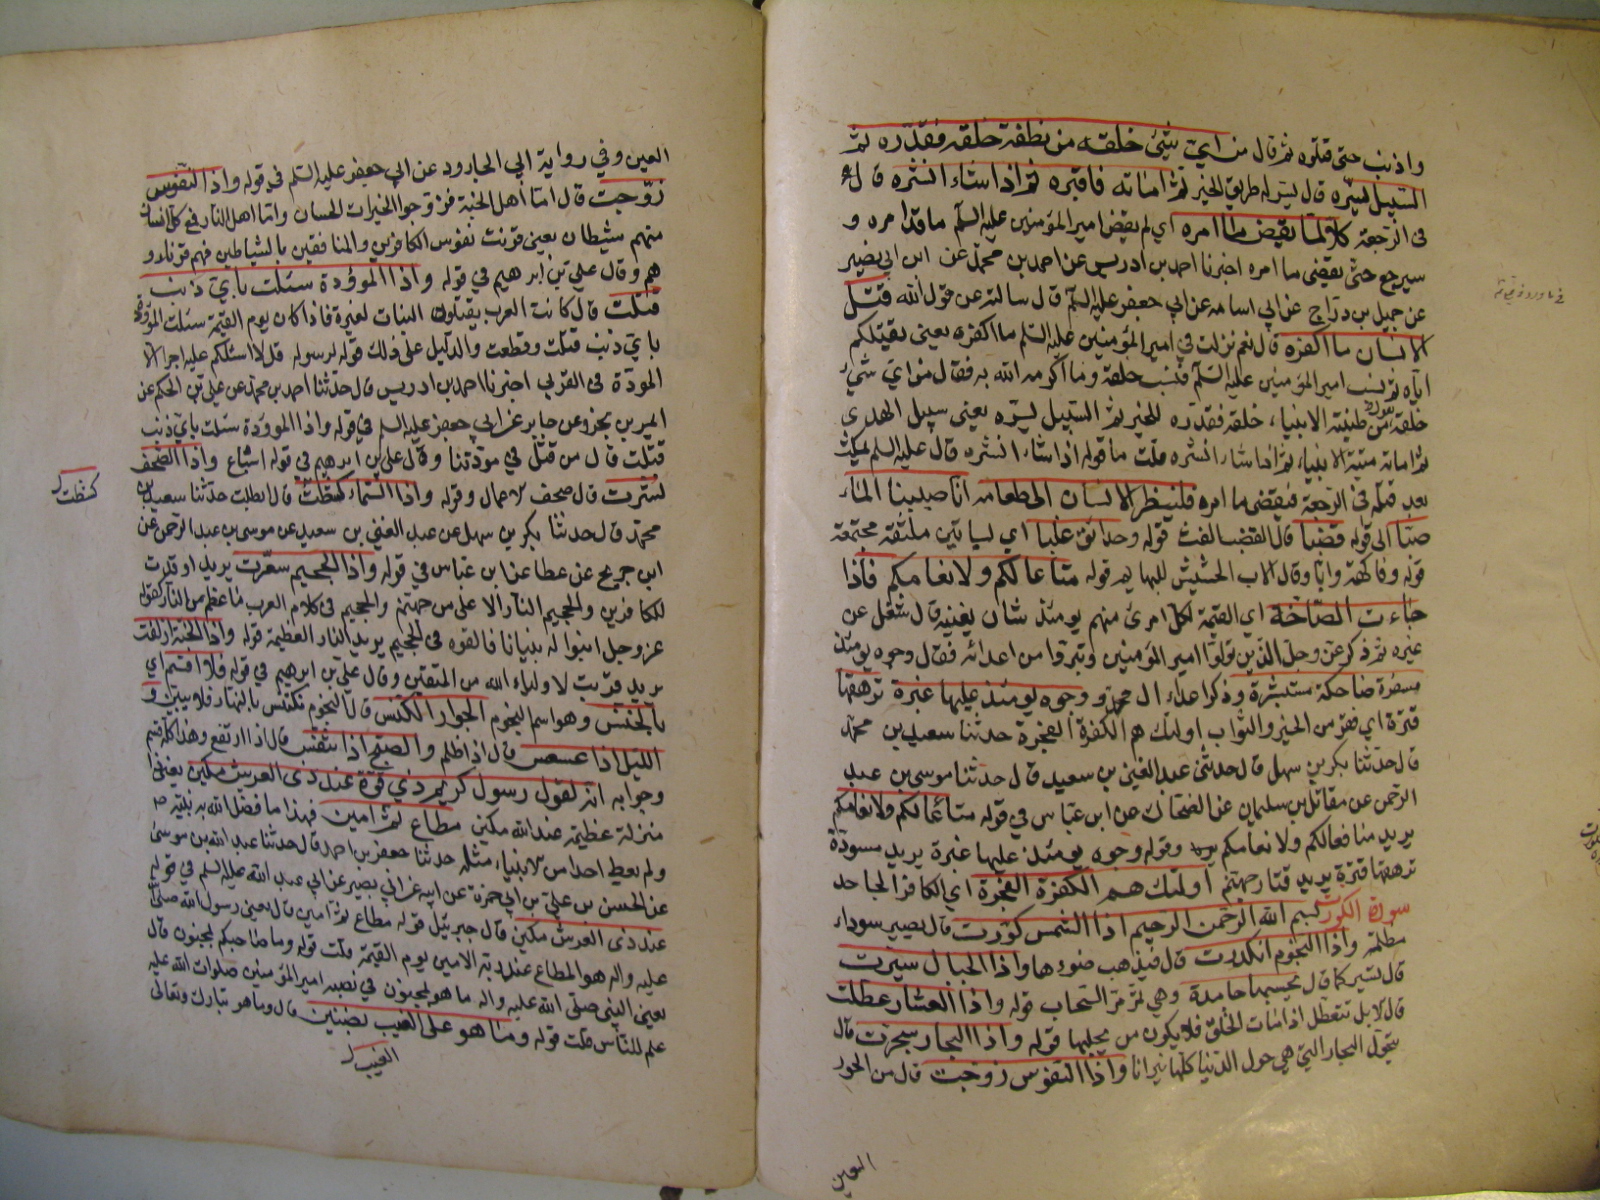 واذنب حتى قتلوه ثم قال من اي شيئ خلقه من نطفة خلقه فقدره ثم
السبيل يسره قال يسر له طريق الخير ثم اماته فاقبره ثم اذا شاء انشره قال
في الرجعة كلا لما يقض ما امره اي لم يقض امير المؤمنين عليه السلم ما قد امره و
سيرجع حتى يقضى ما امره اخبرنا احمد بن ادريس عن احمد بن محمد عن ابن ابي نصير
عن جميل بن دراج عن ابي اسامه عن ابي جعفر عليه السلم قال سالته عن قول الله قتل
الانسان ما اكفره قال نعم نزلت في امير المؤمنين عليه السلم ما اكفره يعنى بقتلكم
اياه ثم نسب امير المؤمنين عليه السلم فنسب خلقه وما اكرمه الله به فقال من اي شيئ
خلقه من طينة الانبياء خلقه فقدره للخير ثم السبيل يسره يعنى سبيل الهدى
ثم اماته ميتة الانبياء ثم اذا شاء انشره قلت ما قوله اذا شاء انشره قال عليه السلم يمكث
بعد قتله في الرجعة فيقضى ما امره فلينظر الانسان الى طعامه انا صببنا الماء
صبا الى قوله وقضبا قال القضب القت قوله وحدائق غلبا اي بساتين ملتفة مجتمعة
قوله وفاكهة وابا وقال الاب الحشيش للبهايم قوله متاعا لكم ولانعامكم فاذا
جاءت الصاخة اي القيمة لكل امرئ منهم يومئذ شان يغنيه قال شغل عن
غيره ثم ذكر عز وجل الذين تولوا امير المؤمنين وتبروا من اعدائه فقال وجوه يومئذ
مسفرة ضاحكة مستبشرة وذكر اعداء ال محمد ووجوه يومئذ عليها غبرة ترهقها
قترة اي فقر من الخير والثواب اولئك هم الكفرة الفجرة حدثنا سعيد بن محمد
قال حدثنا بكر بن سهل قال حدثني عبد الغني بن سعيد قال حدثنا موسى بن عبد
الرحمن عن مقاتل بن سليمان عن الضحاك عن ابن عباس في قوله متاعا لكم ولانعامكم
يريد منافع لكم ولانعامكم وقوله وجوه يومئذ عليها غبرة يريد مسودة
ترهقها قترة يريد قتار جهنم اولئك هم الكفرة الفجرة اي الكافر الجاحد
سورة الكورت بسم الله الرحمن الرحيم اذا الشمس كورت قال تصير سوداء
مظلمة واذا النجوم انكدرت قال يذهب ضوءها واذا الجبال سيرت
قال تسير كما قال تحسبها جامدة وهي تمر مر السحاب قوله واذا العشار عطلت
قال الابل تتعطل اذا مات الخلق فلا يكون من يحلبها قوله واذا البحار سجرت قال
تتحول البحار التي هي حول الدنيا كلها نيرانا واذا النفوس زوجت قال من الحور
العين
العين وفي رواية ابي الجارود عن ابي جعفر عليه السلم في قوله واذا النفوس
زوجت قال اما اهل الجنة فزوجوا الخيرات الحسان واما اهل النار فمع كل انسان
منهم شيطان يعنى قرنت نفوس الكافرين والمنافقين بالشياطين فهم قرناؤ
هم وقال علي بن ابرهيم في قوله واذا الموؤدة سئلت باي ذنب
قتلت قال كانت العرب يقتلون البنات لغيرة فاذا كان يوم القيمة سئلت الموؤدة
باي ذنب قتلت وقطعت والدليل على ذلك قوله لرسوله قل لا اسئلكم عليه اجرا الا
المودة في القربى اخبرنا احمد بن ادريس قال حدثنا احمد بن محمد عن علي بن الحكم عن
عن جابر عن ابي جعفر عليه السلم في قوله واذا الموؤدة سئلت باي ذنب
قتلت قال من قتل في مودتنا وقال علي بن ابرهيم في قوله واذا الصحف
نشرت قال صحف الاعمال وقوله واذا السماء كشطت قال ابطلت حدثنا سعيد بن
كشطت
محمد قال حدثنا بكر بن سهل عن عبد الغني بن سعيد عن موسى بن عبد الرحمن عن
ابن جريح عن عطا عن ابن عباس في قوله واذا الجحيم سعرت يريد اوقدت
للكافرين والجحيم النار الاعلى من جهنم والجحيم في كلام العرب ما عظم من النار كقوله
عز وجل ابنوا له بنيانا فالقوه في الجحيم يريد النار العظيمة قوله واذا الجنة ازلفت
يريد قربت لاولياء الله من المتقين وقال علي بن ابرهيم في قوله فلا اقسم اي
بالخنس وهو اسم النجوم الجوار الكنس قال النجوم تكنس بالنهار فلا تبين و
الليل اذا عسعس قال اذا اظلم والصبح اذا تنفس قال اذا ارتفع وهذا كله قسم
وجوابه انه لقول رسول كريم ذي قوة عند ذى العرش مكين يعنى ذا
منزلة عظيمة عند الله مكين مطاع ثم امين فهذا ما فضل الله به نبيه
ولم يعط احدا من الانبياء مثله حدثنا جعفر بن احمد قال حدثنا عبد الله بن موسى
عن الحسن بن علي بن ابي حمزة عن ابيه عن ابي بصير عن ابي عبد الله عليه السلم في قوله
عند ذى العرش مكين قال جبرئيل قوله مطاع ثم امين قال يعنى رسول الله صلى الله
عليه واله هو المطاع عند ربه الامين يوم القيمة قلت قوله وما صاحبكم بمجنون قال
يعنى النبي صلى الله عليه واله ما هو بمجنون في نصبه امير المؤمنين صلوات الله عليه
علم للناس قلت قوله وما هو على الغيب بضنين قال وما هو تبارك وتعالى
الغيب